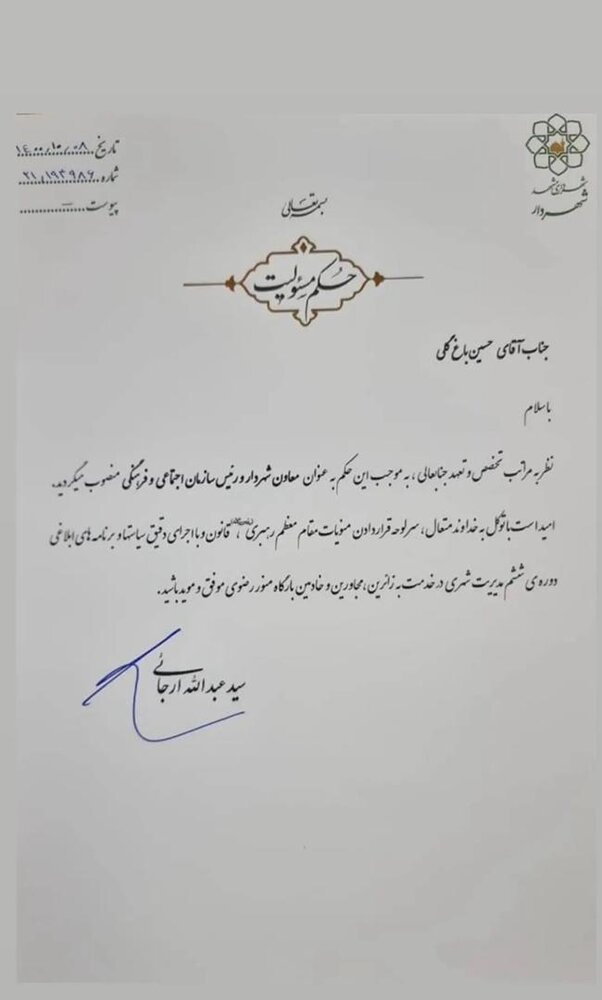 شهرداری مشهد
شهردار
تاریخ ۱۴۰۰/۱۰/۰۸
شماره ۲۱/۱۹۳۹۸۶
پیوست
بسمه تعالی
حکم مسئولیت
جناب آقای حسین باغ گلی
با سلام
نظر به مراتب تخصص و تعهد جنابعالی ، به موجب این حکم به عنوان معاون شهردار و رئیس سازمان اجتماعی و فرهنگی منصوب میگردید.
امید است با توکل به خداوند متعال ، سرلوحه قرار دادن منویات مقام معظم رهبری ، قانون و با اجرای دقیق سیاستها و برنامه های ابلاغی
دوره ی ششم مدیریت شهری در خدمت به زائرین ، مجاورین و خادمین بارگاه منور رضوی موفق و موید باشید .
سید عبدالله ارجائی